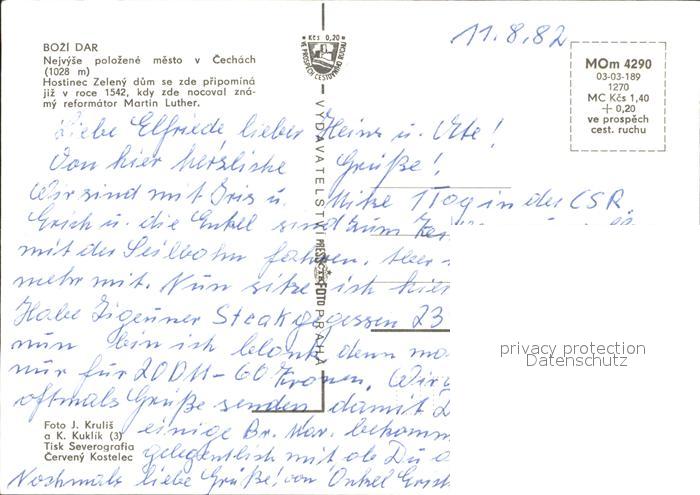 BOŽÍ DAR
Nejvýše položené město v Čechách
(1028 m)
Hostinec Zelený dům se zde připomíná
již v roce 1542, kdy zde nocoval zná-
mý reformátor Martin Luther.
Kčs 0,20
VE PROSPĚCH CESTOVNÍHO RUCHU
11.8.82
MOm 4290
03-03-189
1270
MC Kčs 1,40
+ 0,20
ve prospěch
cest. ruchu
VYDAVATELSTVÍ PRESSFOTO PRAHA
Liebe Elfriede, lieber Heinz u. Ute!
Von hier herzliche Grüße!
Wir sind mit Iris u. Mike 1 Tag in der CSR
Erich u. die Enkel sind zum
mit der Seilbahn fahren. Aber
mehr mit. Nun sitze ich hier
Habe Zigeuner Steak gegessen 23
nun bin ich blank, denn ma
nur für 20 DM - 60 Kronen. Wir
oftmals Grüße senden damit
einige Br. Mar. bekomm
gelegentlich mit ob Du
Nochmals liebe Grüße! von Onkel Erich
Foto J. Kruliš
a K. Kuklík (3)
Tisk Severografia
Červený Kostelec
privacy protection
Datenschutz